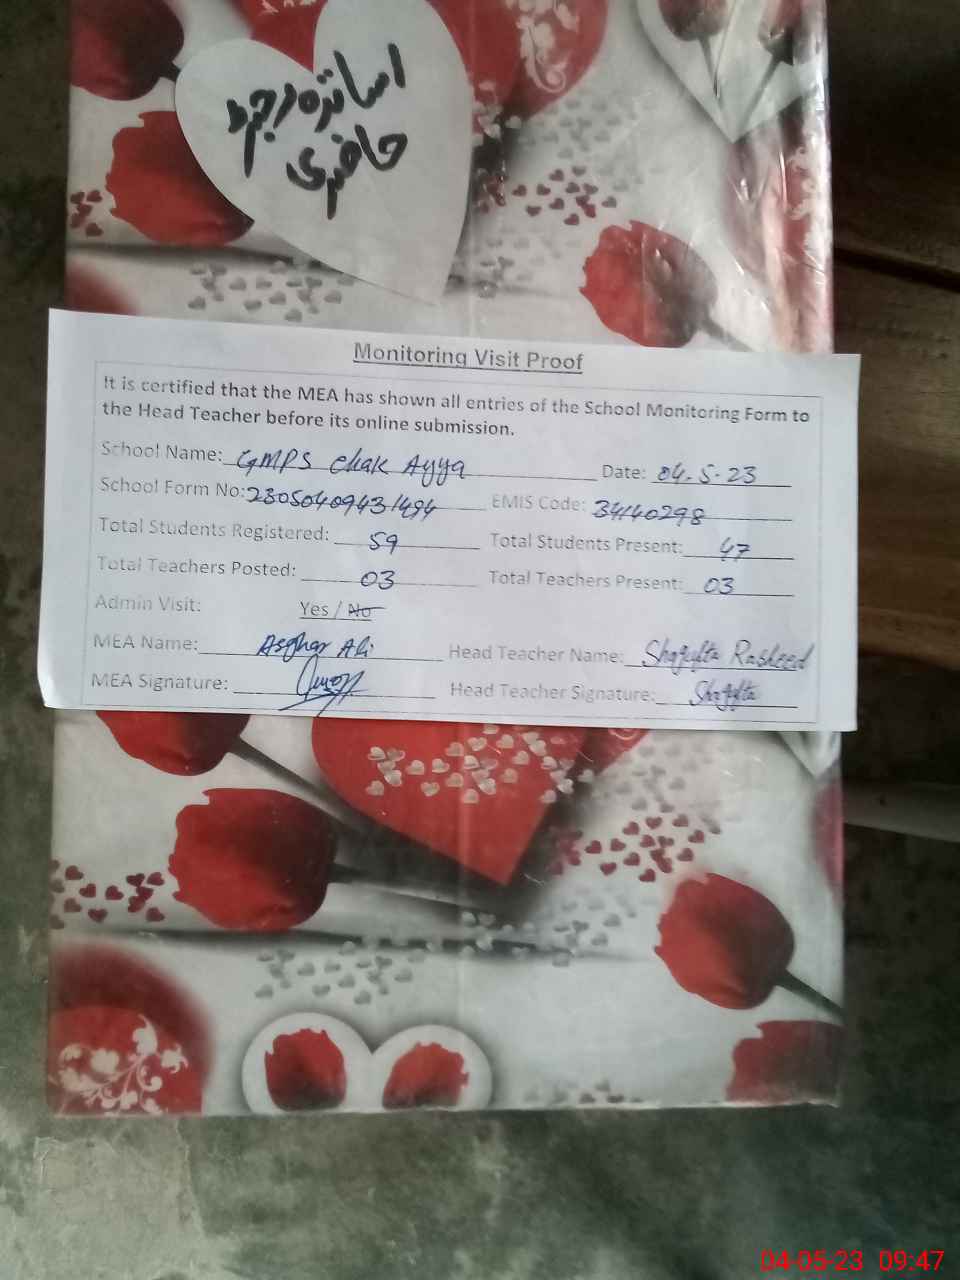 اساتذہ رجسٹر
حاضری
Monitoring Visit Proof
It is certified that the MEA has shown all entries of the School Monitoring Form to
the Head Teacher before its online submission.
School Name: GMPS Chak Ayya Date: 04.5.23
School Form No: 23050409431494 EMIS Code: 34140298
Total Students Registered: 59 Total Students Present: 47
Total Teachers Posted: 03 Total Teachers Present: 03
Admin Visit: Yes / No
MEA Name: Asghar Ali Head Teacher Name: Shagufta Rasheed
MEA Signature: Head Teacher Signature: Shagufta
04-05-23 09:47